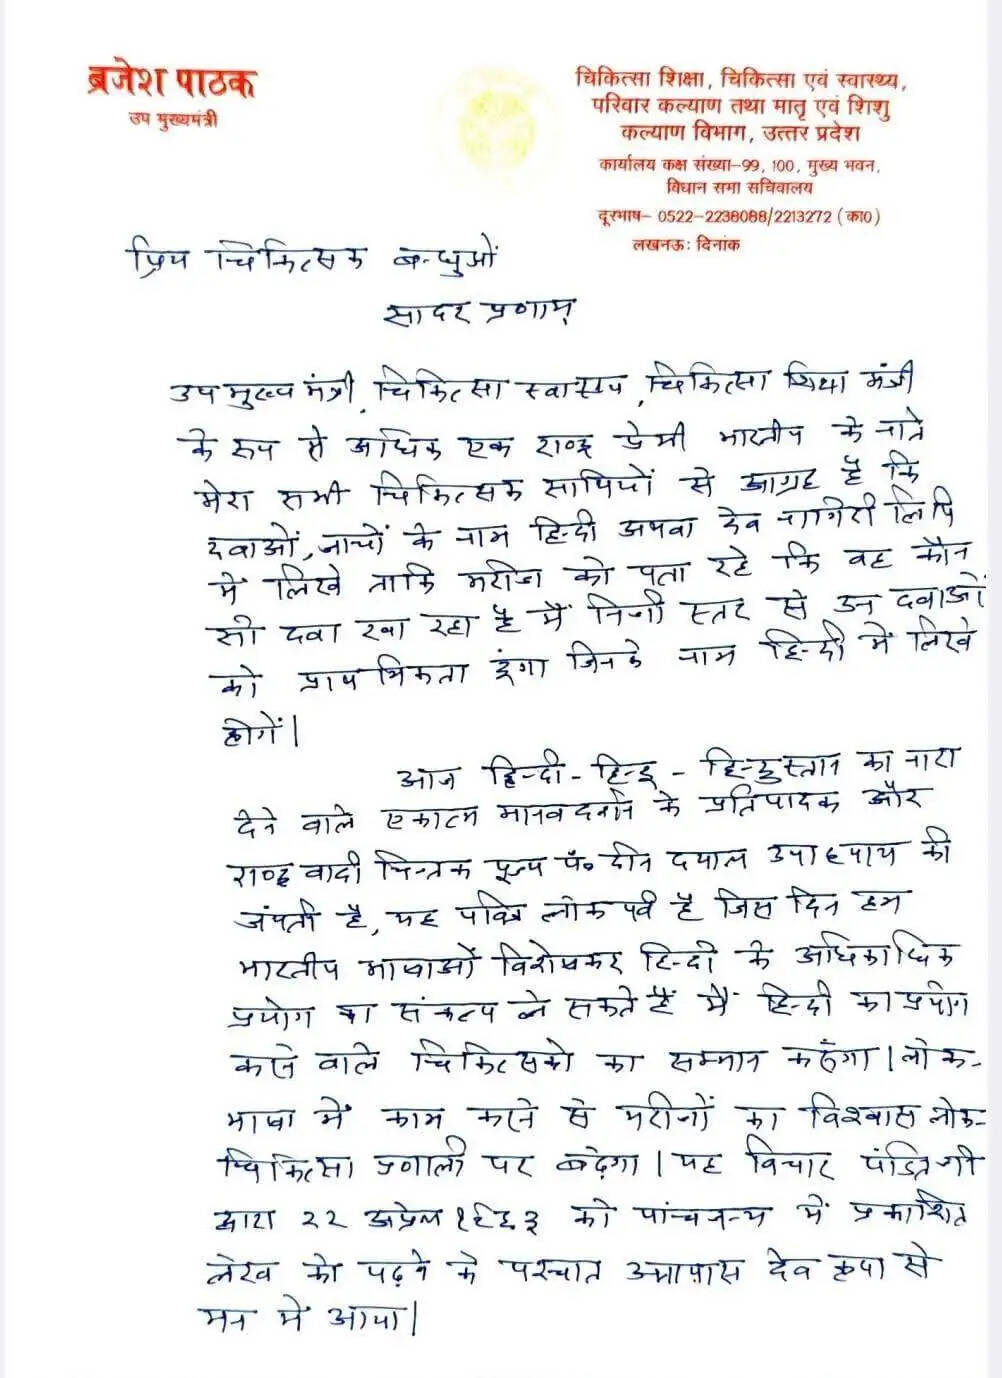 ब्रजेश पाठक
उप मुख्यमंत्री
चिकित्सा शिक्षा, चिकित्सा एवं स्वास्थ्य,
परिवार कल्याण तथा मातृ एवं शिशु
कल्याण विभाग, उत्तर प्रदेश
कार्यालय कक्ष संख्या-99, 100, मुख्य भवन,
विधान सभा सचिवालय
दूरभाष- 0522-2238088/2213272 (का0)
लखनऊ: दिनांक
प्रिय चिकित्सक बन्धुओं
सादर प्रणाम्
उप मुख्य मंत्री, चिकित्सा स्वास्थ्य, चिकित्सा शिक्षा मंत्री
के रूप से अधिक एक राष्ट्र प्रेमी भारतीय के नाते
मेरा सभी चिकित्सक साथियों से आग्रह है कि
दवाओं, जाचों के नाम हिन्दी अथवा देव नागिरी लिपि
में लिखे ताकि मरीज को पता रहे कि वह कौन
सी दवा खा रहा है मैं निजी स्तर से उन दवाओं
को प्राथमिकता दूंगा जिनके नाम हिन्दी में लिखे
होगें।
आज हिन्दी - हिन्दू - हिन्दुस्तान का नारा
देने वाले एकात्म मानव दर्शन के प्रतिपादक और
राष्ट्र वादी चिन्तक पूज्य पं० दीन दयाल उपाध्याय की
जंयती है, यह पवित्र लोकपर्व है जिस दिन हम
भारतीय भाषाओं विशेषकर हिन्दी के अधिकाधिक
प्रयोग का संकल्प ले सकते हैं मैं हिन्दी का प्रयोग
करने वाले चिकित्सको का सम्मान करूंगा। लोक-
भाषा में काम करने से मरीजों का विश्वास लोक-
चिकित्सा प्रणाली पर बढ़ेगा। यह विचार पंडित जी
द्वारा २२ अप्रैल १९६३ को पांचजन्य में प्रकाशित
लेख को पढ़ने के पश्चात अनायास देव कृपा से
मन में आया।